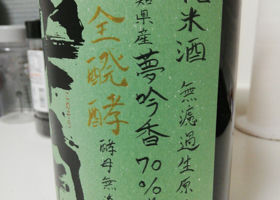 純米酒
無濾過生原
知県産 夢吟香 70%
全醗酵
酵母無